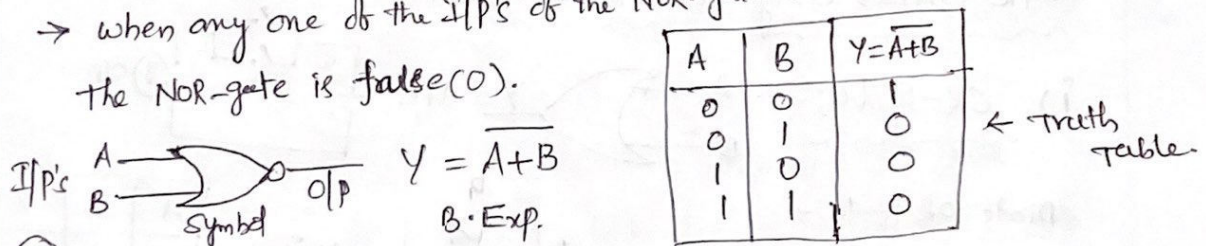 → when any one of the I/P's of the NOR-g
the NOR-gate is false(0).
I/P's A B O/P Symbol
Y = \overline{A+B}
B. Exp.
A B Y=\overline{A+B}
0 0 1
0 1 0
1 0 0
1 1 0
← Truth Table.